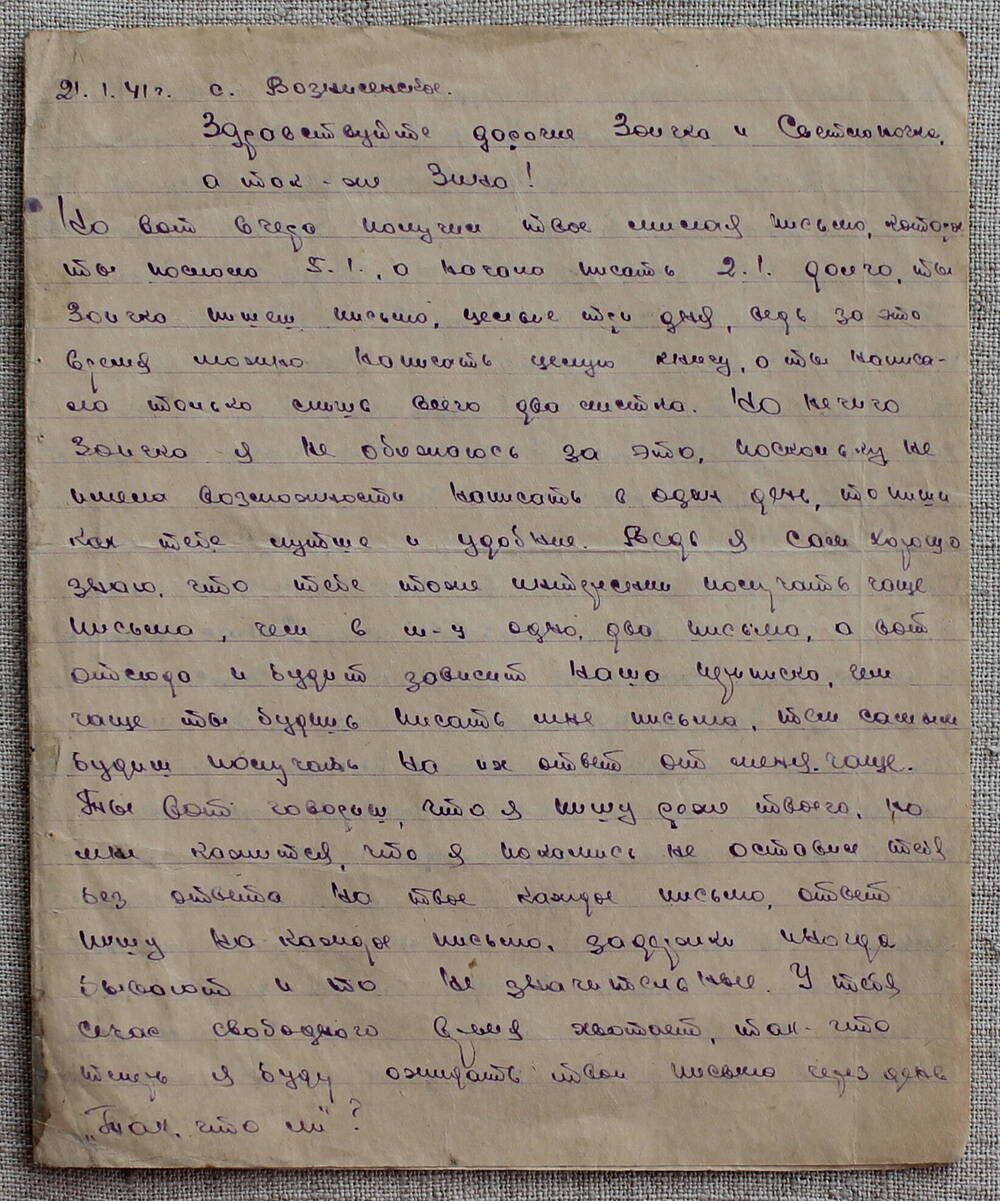 21.1.41г. с. Вознисенское.
Здравствуйте дорогие Зоичка и Светлоночка,
а так-же Зина!
Но вот вчера получил твое милая письмо, которое
ты послала 5.1., а начала писать 2.1. долго, ты
Зоичка пишеш письмо, целые три дня, ведь за это
время можно написать целую книгу, а ты написа-
ла только лишь всего два листка. Но нечиго
Зоичка я не обежаюсь за это, поскольку не
имела возможности написать в один день, то пиши
как тебе лутше и удобние. Ведь я сам хорошо
знаю, что тебе тоже интересни получать чаще
письма, чем в м-ц одно, два письма, а вот
отсюда и будит зависит наша переписка, чем
чаще ты будишь писать мне письма, тем самым
будиш получать на их ответ от меня. чаще.
Ты вот говориш, что я пишу реже твоего, но
мни кажится, что я покамись не оставил тебя
без ответа на твое каждое письмо, ответ
пишу на каждое письмо, задержки иногда
бывают и то не значительные. У тебя
сичас свободного время хватает, так-что
теперь я буду ожидать твои письма через день
„Так, что ли"?